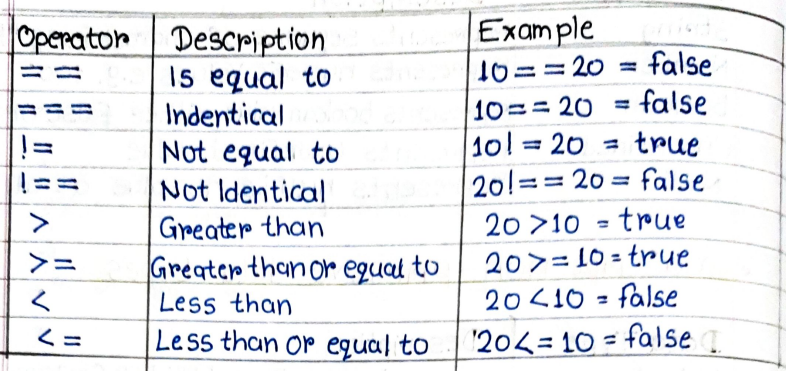 Operator Description Example
== Is equal to 10==20 = false
=== Indentical 10==20 = false
!= Not equal to 10!=20 = true
!== Not Identical 20!==20 = false
> Greater than 20>10 = true
>= Greater than or equal to 20>=10=true
< Less than 20<10 = false
<= Less than or equal to 20<=10 = false